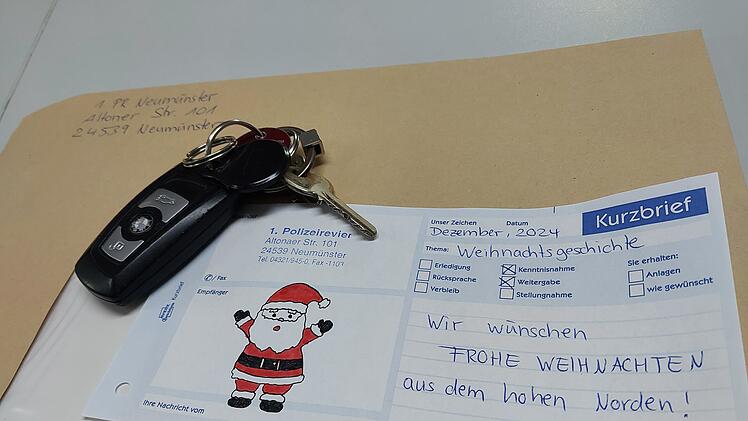 1. PR Neumünster
Altoner Str. 101
24539 Neumünster
1. Polizeirevier
Altonaer Str. 101
24539 Neumünster
Tel. 04321/945-0, Fax -1101
✆/Fax
Empfänger
Ihre Nachricht vom
Kurzbrief
Unser Zeichen Datum
Dezember, 2024
Kurzbrief
Thema: Weihnachtsgeschichte
Erledigung
Rücksprache
Verbleib
Kenntnisnahme
Weitergabe
Stellungnahme
Sie erhalten:
Anlagen
wie gewünscht
Wir wünschen
FROHE WEIHNACHTEN
aus dem hohen Norden!